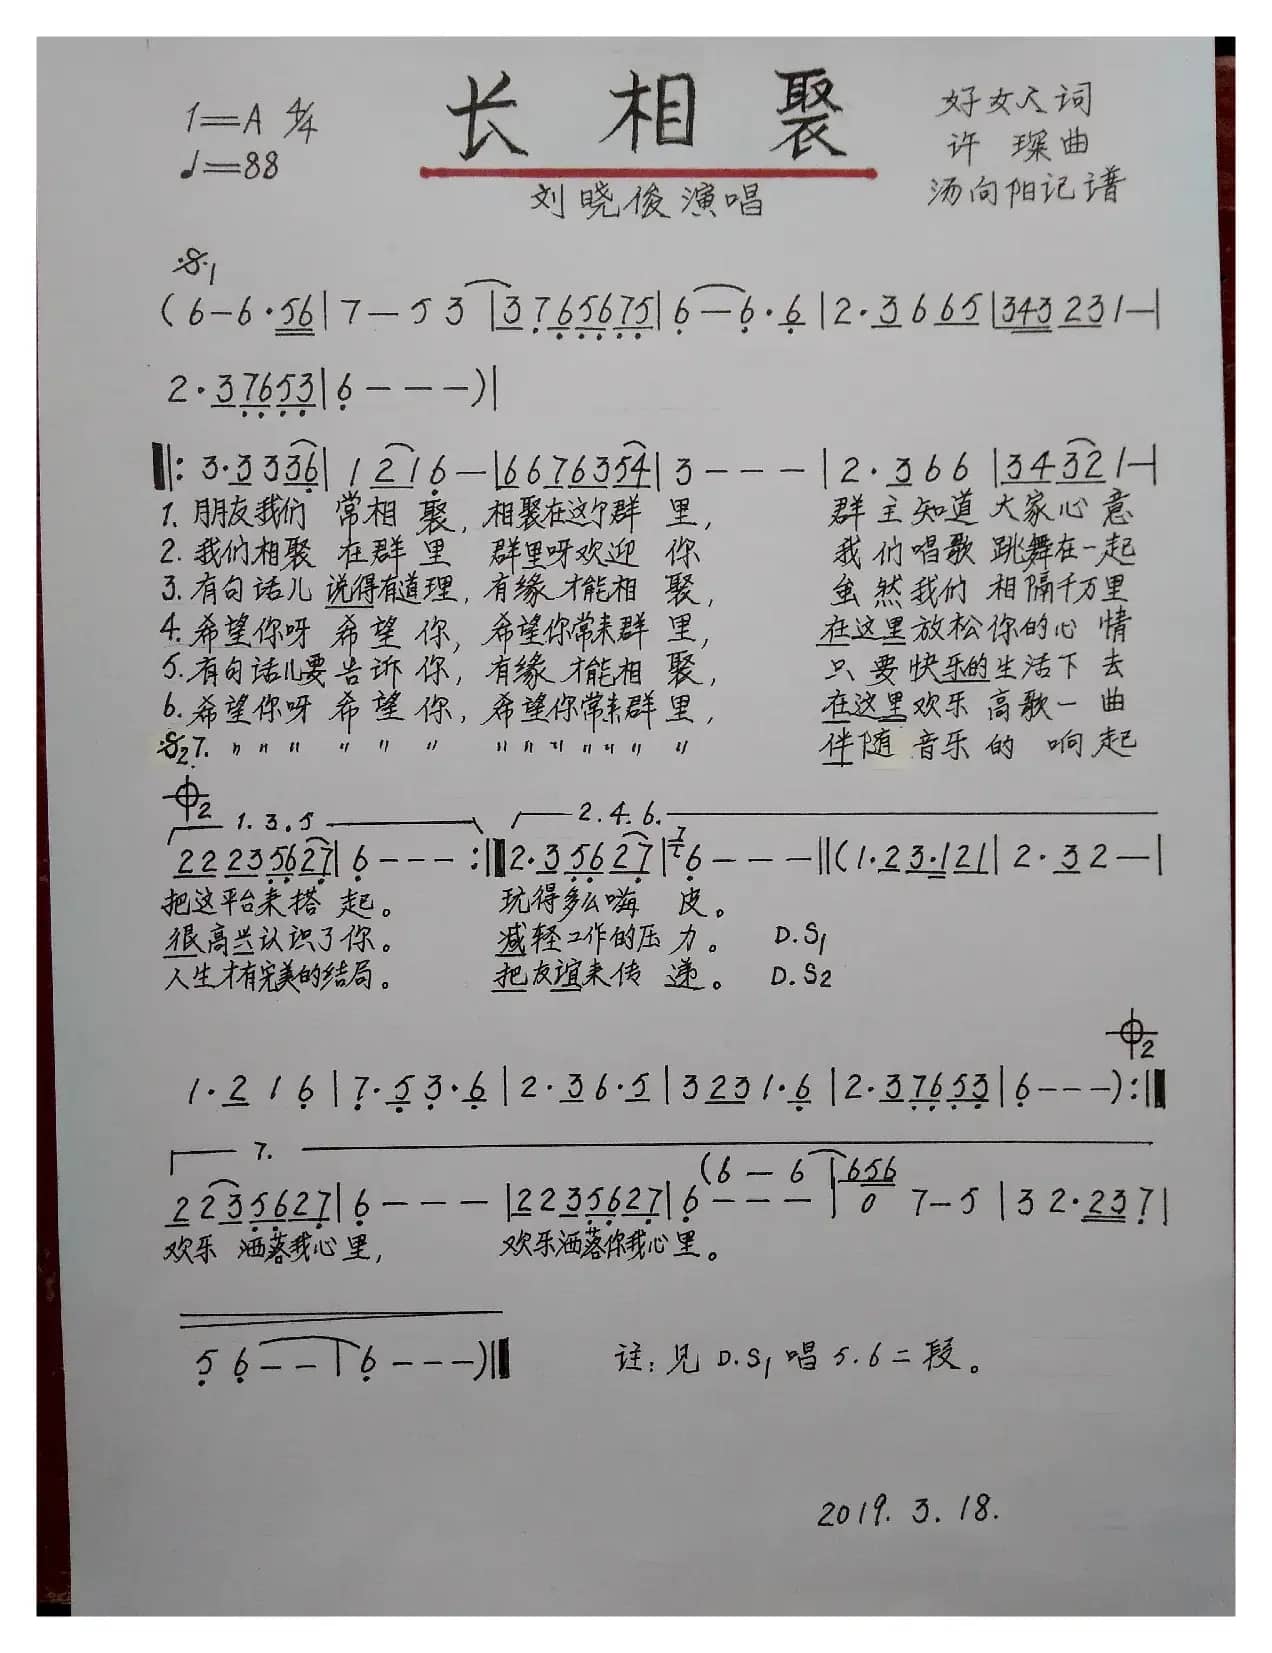 长相聚
1=A 4/4
♩=88
好女人词
许琛曲
汤向阳记谱
刘晓俊演唱
𝄋1
(6-6·56|7-53|3765675|6-6·6|2·3665|343231-|
2·37653|6---)|
‖:3·3336|1216-|66763554|3---|2·366|34321-|
1. 朋友我们 常相聚, 相聚在这个群里, 群主知道 大家心意
2. 我们相聚 在群里 群里呀欢迎你 我们唱歌 跳舞在一起
3. 有句话儿 说得有道理, 有缘才能相聚, 虽然我们 相隔千万里
4. 希望你呀 希望你, 希望你常来群里, 在这里放松你的心情
5. 有句话儿要告诉你, 有缘才能相聚, 只要快乐的生活下去
6. 希望你呀 希望你, 希望你常来群里, 在这里欢乐高歌一曲
𝄋2 7. 〃〃〃 〃〃〃 〃〃〃〃〃〃〃 伴随音乐的响起
𝄌2
1.3.5 2.4.6.
22235627|6---:‖2·35627|6---‖(1·23·121|2·32-|
把这平台来搭起。 玩得多么嗨皮。
很高兴认识了你。 减轻工作的压力。 D.S1
人生才有完美的结局。 把友谊来传递。 D.S2
𝄌2
1·216|7·53·6|2·36·5|3231·6|2·37653|6---):‖
7.
(6-6|656
2235627|6---|2235627|6---|0 7-5|32·237|
欢乐 洒落我心里, 欢乐洒落你我心里。
56--|6---)‖
注:见D.S1唱5.6二段。
2019.3.18.